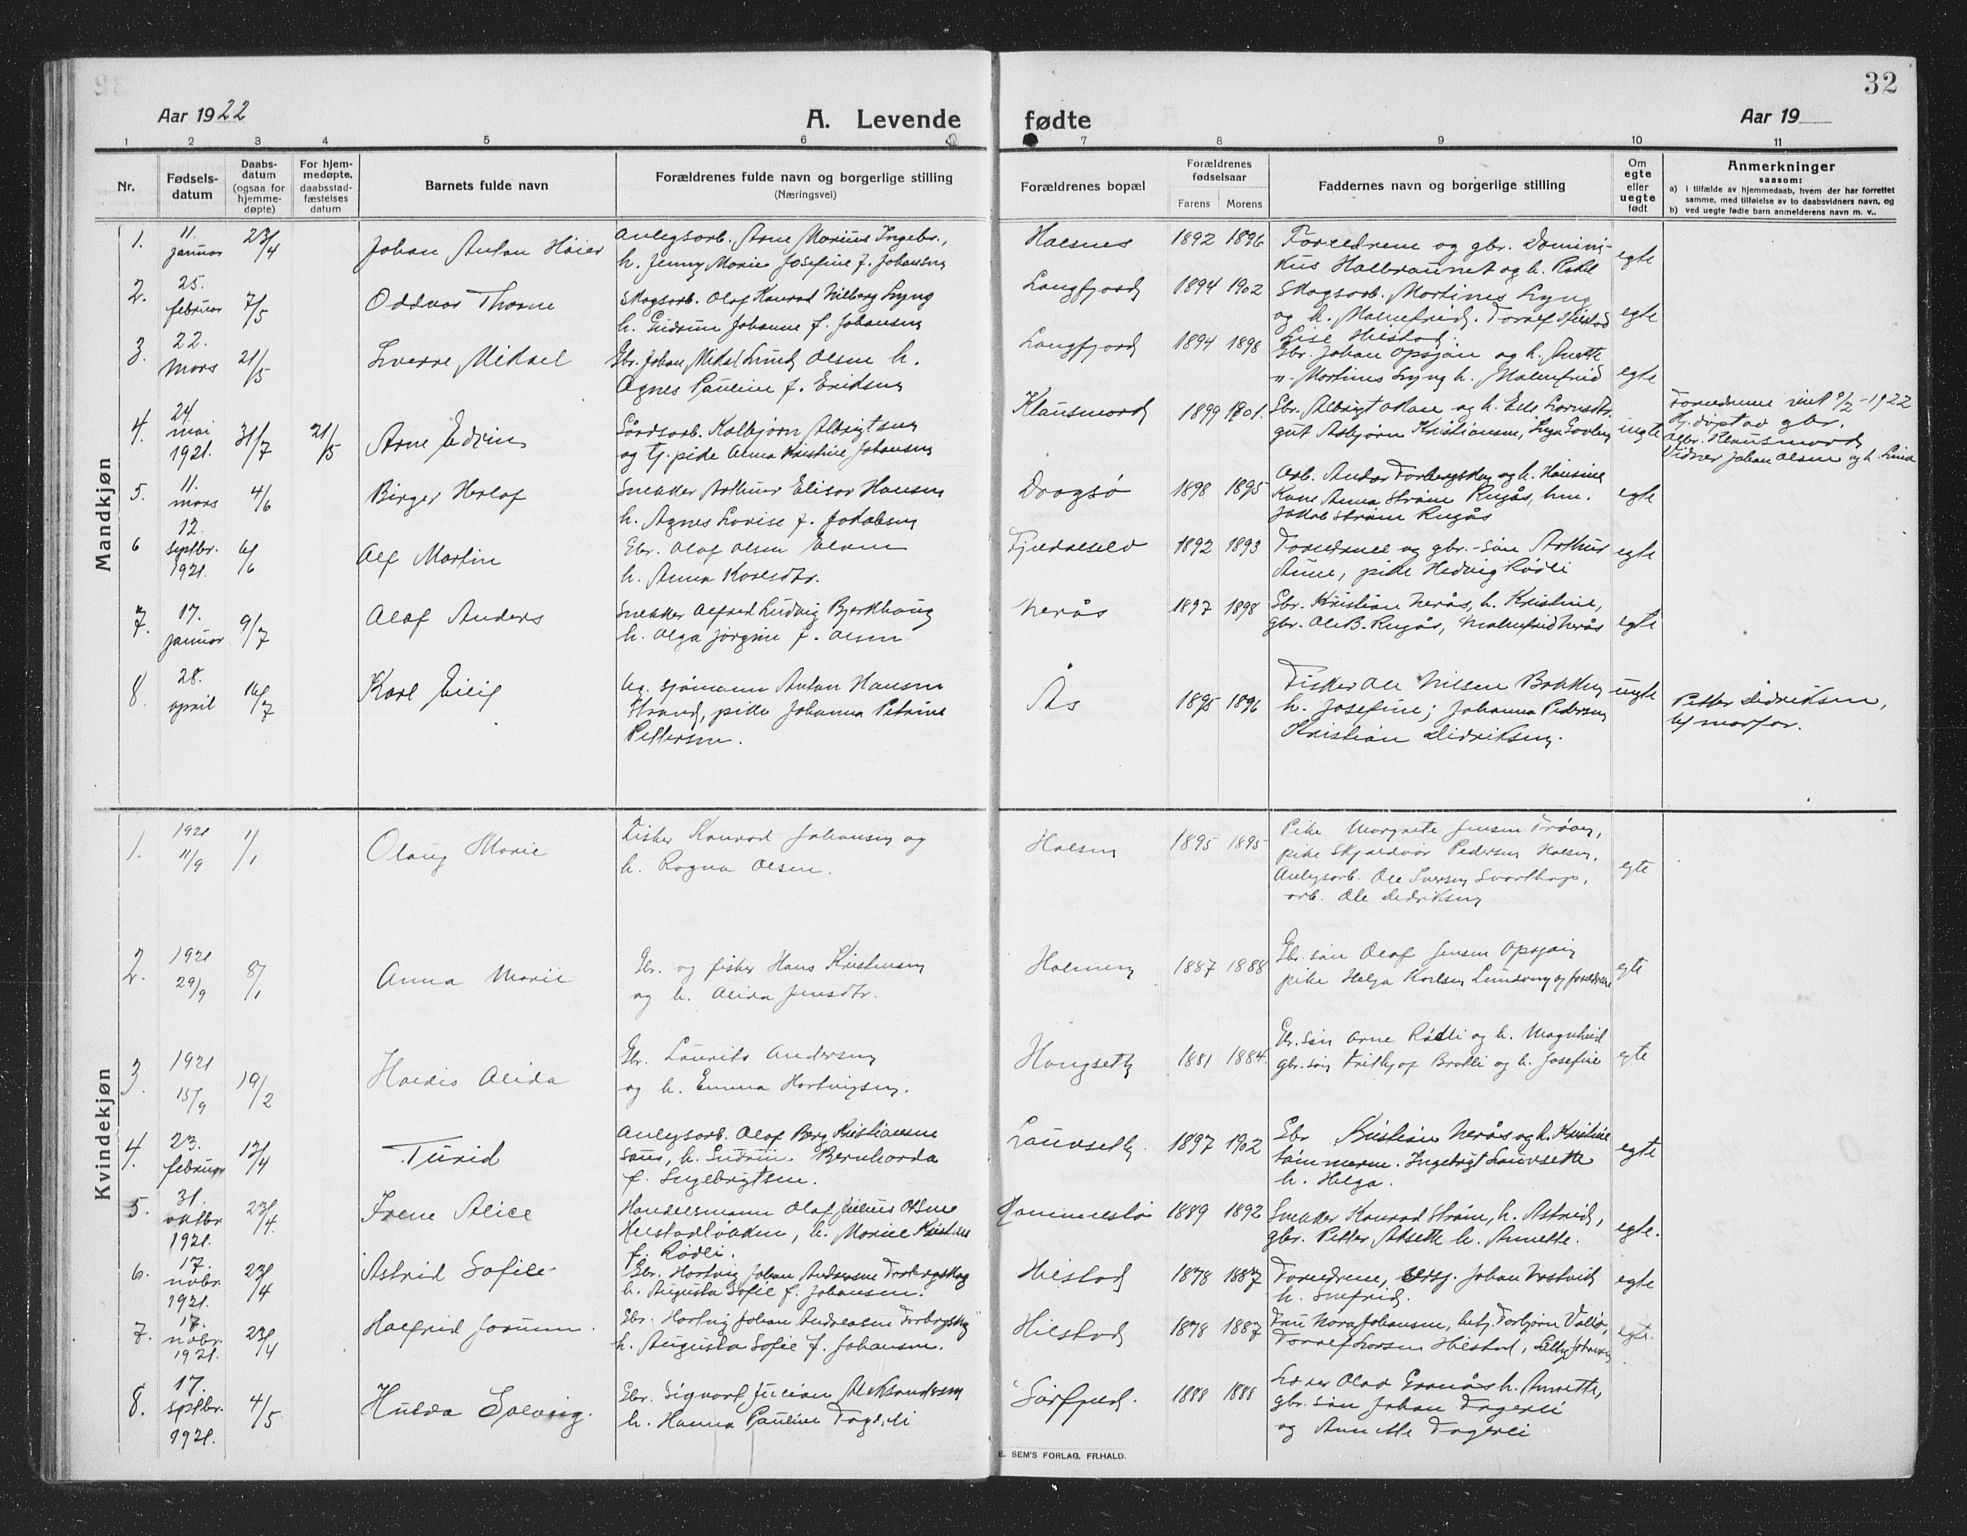 32
Aar 1922 A. Levende fødte Aar 19
1 2 3 4 5 6 7 8 9 10 11
Nr. Fødsels-datum Daabs-datum (ogsaa for hjemme-døpte) For hjem-medøpte. daabsstad-fæstelses datum Barnets fulde navn Forældrenes fulde navn og borgerlige stilling (Næringsvei) Forældrenes bopæl Forældrenes fødselsaar Farens Morens Faddernes navn og borgerlige stilling Om egte eller uegte født Anmerkninger saasom: a) i tilfælde av hjemmedaab, hvem der har forrettet samme, med tilføielse av to daabsvidners navn, og b) ved uegte fødte barn anmelderens navn m. v..
Mandkjøn
1. 11. januar 23/4 Johan Anton Høier Anlegsarb. Arne Marius Ingebr.,
h. Jenny Marie Josefine f. Johansen
Halsnes 1892 1896 Foreldrene og gbr. Domini-
kus Halbraunet og h. Rakel egte
2. 25. februar 7/5 Oddvar Thorne Skogsarb. Olaf Konrad Vilberg Lyng
h. Gudrun Johanne f. Johansen
Langfjord 1894 1902 Skogsarb. Martines Lyng
og h. Malmfrid. Torlef Hilstad egte
Lise Hilstad.
3. 22. Mars 21/5 Sverre Mikael Gbr. Johan Mikal Lund Olsen h.
Agnes Pauline f. Eriksen
Langfjord 1894 1898 Gbr. Johan Opsjøn og h. Anette
"- Martines Lyng h. Malmfrid egte
4. 24. mai 1921. 31/7 21/5 Arne Edvin Gårdsarb. Kolbjørn Albrigtsen
og tj. pike Anna Kristine Johansen
Klausmark 1899 1901. Gbr. Albrigt Olsen og h. Elle Larsdtr.
gut Asbjørn Kristiansen, uegte
Foreldrene viet 9/2-1922
Hj. døpt av gbr.
Klausmark
Vidner Johan Olsen og h. Lina
5. 11. mars 4/6 Birger Herlof Snekker Arthur Elisar Hansen
h. Agnes Lovise f. Jakobsen
Dragsø 1898 1895 Arb. Andor Torbergskog h. Hansine
Kone Anna Strøm Ryggås, hm.
Jakob Strøm Ryggås egte
6 12. septbr. 1921. 6/6 Alf Martin Gbr. Olaf Olsen
h. Anna Karlsdtr.
1892 1893 Foreldrene og gbr.-søn Arthur
Aune, pike Hedvig Rødli egte
7. 17. januar 9/7 Olaf Anders Snekker Alfred Ludvig Bjerkhaug
h. Olga Jørgine f. Olsen
Nerås 1897 1898 Gbr. Kristian Nerås, h. Kristine,
gbr. Ole B. Ryggås, Malmfrid Nerås egte
8. 28. april 16/7 Karl Eilif Ug. sjømann Anton Hansen
Strand, pike Johanna Petrine
Pettersen.
Ås 1895 1896 Fisker Ole Nilsen Bakken
h. Josefine; Johanna Pedersen
Kristian Didriksen. uegte
Petter Didriksen,
morfar.
Kvindekjøn
1. 1921 11/9 1/1 Olaug Marie Fisker Konrad Johansen og
h. Ragna Olsen.
Halsen 1895 1895 Pike Margrete Jensen Trøen,
pike Skjaldvor Pedersen Halsen,
Anlegsarb. Ole Iversen Svarthop,
arb. Ole Didriksen egte
2. 1921 29/9 8/1 Anna Marie Gbr. og fisker Hans Kristensen
og h. Alida Jensdtr.
Holmen 1887 1888 Gbr.søn Olaf Jensen Opsjøn
pike Helga Karlsen og foreldrene egte
3. 1921 15/9 19/2 Haldis Alida Gbr. Laurits Andersen
og h. Emma Hartvigsen.
Haugseth 1881 1884. Gbr.søn Arne Rødli og h. Magnhild
gbr.søn Frithjof Bratli og h. Josefine egte
4. 23. februar 13/4 Turid Anlegsarb. Olaf Berg Kristiansen
Saus, h. Gudrun Bernharda
f. Ingebrigtsen.
Lauvseth 1897 1902 Gbr Kristian Nerås og h. Kristine
tømmerm. Ingebrigt Lauvseth
h. Helga. egte
5. 31. oktbr 1921. 23/4 Irene Alice Handelsmann Olaf Julius Olsen
h. Marine Kristine
f. Rødli.
1889 1892 Snekker Konrad Strøm, h. Astrid,
gbr. Petter Alseth h. Annette. egte.
6. 17. novbr. 1921. 23/4 Astrid Sofie Gbr. Hartvig Johan Andreasen Torbergskog
h. Augusta Sofie f. Johansen.
Hilstad 1878 1887 Foreldrene, Johan Vestvik
h. Snefrid. egte
7. 17. novbr. 1921. 23/4 Halfrid Jorunn. Gbr. Hartvig Johan Andreasen Torbergskog
h. Augusta Sofie f. Johansen.
Hilstad 1878 1887 Fru Nora Johansen, betj. Torbjørn Valø,
Torlef Larsen Hilstad, Johansen egte.
8. 17. septbr. 1921. 4/5 Hulda Solveig. Gbr. Sigvart Julian Aleksandersen
h. Hanna Pauline Fagerli
Sørfjord. 1888 1888 Lærer Olav Granås h. Annette,
gbr.søn Johan Fagerli
og Annette Fagerli
E. SEM'S FORLAG, FR.HALD.